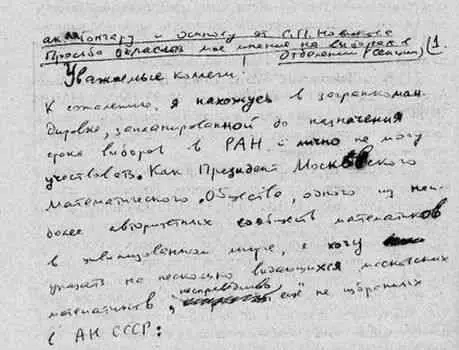 ак. Гончару и Осипову от С.П. Новикова
Просьба огласить мое мнение на выборах в
Отделении (секции) (1.
Уважаемые коллеги.
К сожалению, я нахожусь в загранкоман
дировке, запланированной до назначения
срока выборов в РАН и лично не могу
участвовать. Как Президент Московского
Математического Общества, одного из наи
более авторитетных сообществ математиков
в цивилизованном мире, я хочу
указать на несколько выдающихся московских
математиков, несправедливо еще не избранных
в АН СССР: